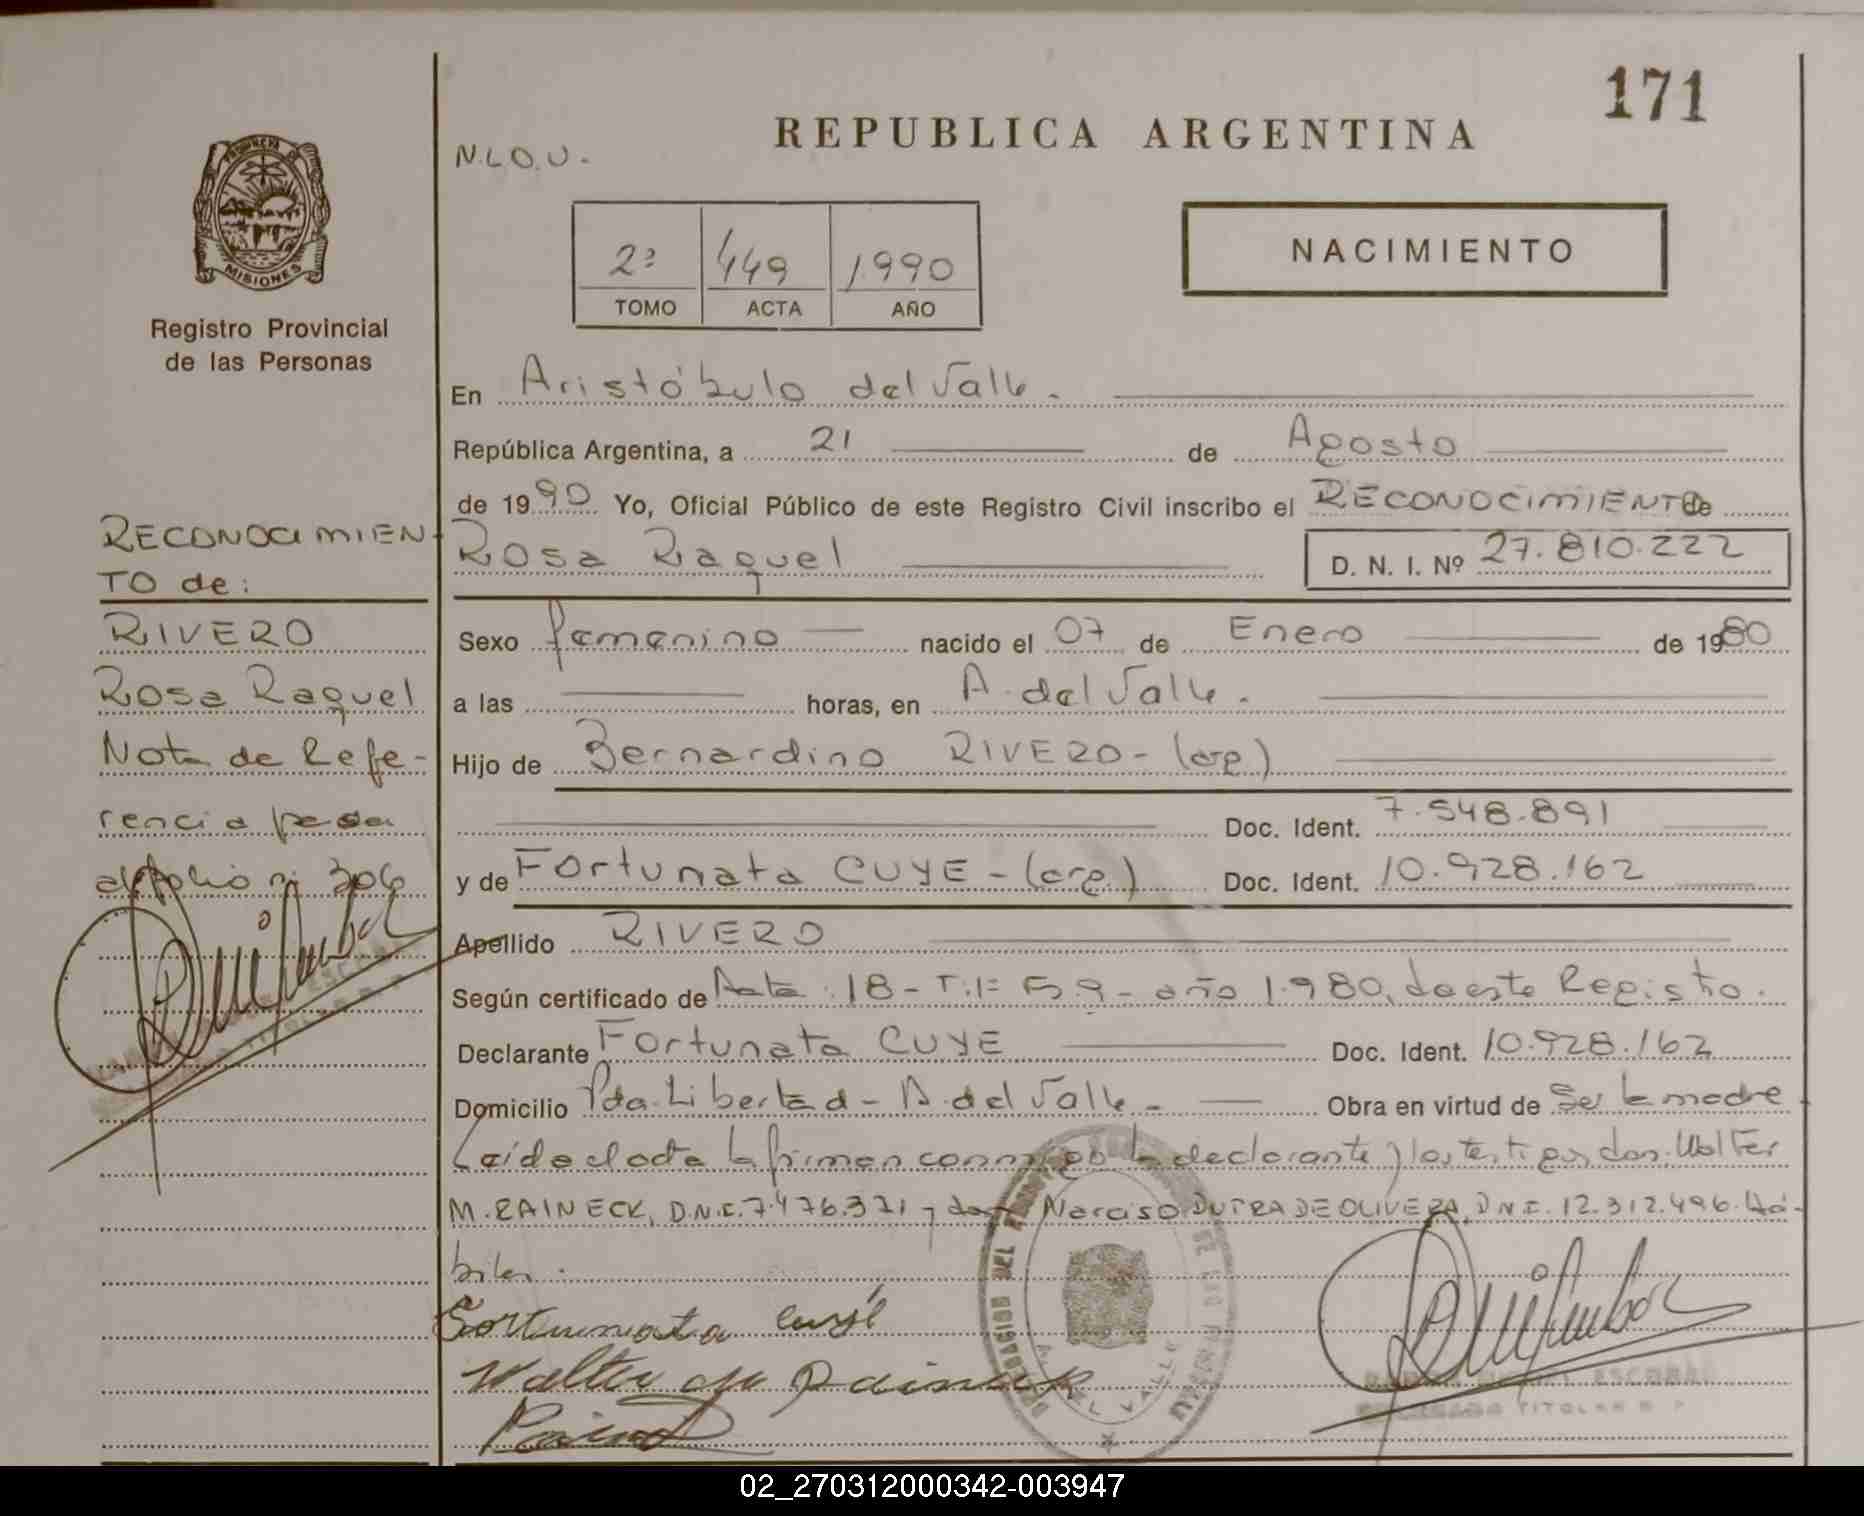 171
REPUBLICA ARGENTINA
N.L.O.U.-
PROVINCIA DE
MISIONES
Registro Provincial
de las Personas
2º 449 1990
TOMO ACTA AÑO
NACIMIENTO
En Aristóbulo del Valle.
República Argentina, a 21 de Agosto
de 1990 Yo, Oficial Público de este Registro Civil inscribo el RECONOCIMIENTO de
Rosa Raquel D. N. I. Nº 27.810.222
Sexo femenino nacido el 07 de Enero de 1980
a las horas, en A. del Valle.
Hijo de Bernardino RIVERO-(arg)
Doc. Ident. 7.548.891
y de Fortunata CUYE-(arg.) Doc. Ident. 10.928.162
Apellido RIVERO
Según certificado de Acta: 18- T:1º F:9- año 1.980, de este Registro.
Declarante Fortunata CUYE Doc. Ident. 10.928.162
Domicilio Pda. Libertad- A. del Valle- Obra en virtud de Ser la madre
Leída el acta la firman conmigo la declarante y los testigos don Walter
M. RAINECK, D.N.I. 7.476.371 y don Narciso DUTRA DE OLIVERA, D.N.I. 12.312.496. Há-
biles.
Fortunata Cuyé
Walter
RECONOCIMIEN-
TO de:
RIVERO
Rosa Raquel
Nota de Refe-
rencia pasa
al folio nº 306
ESCOBAR
TITULAR R. P.
02_270312000342-003947